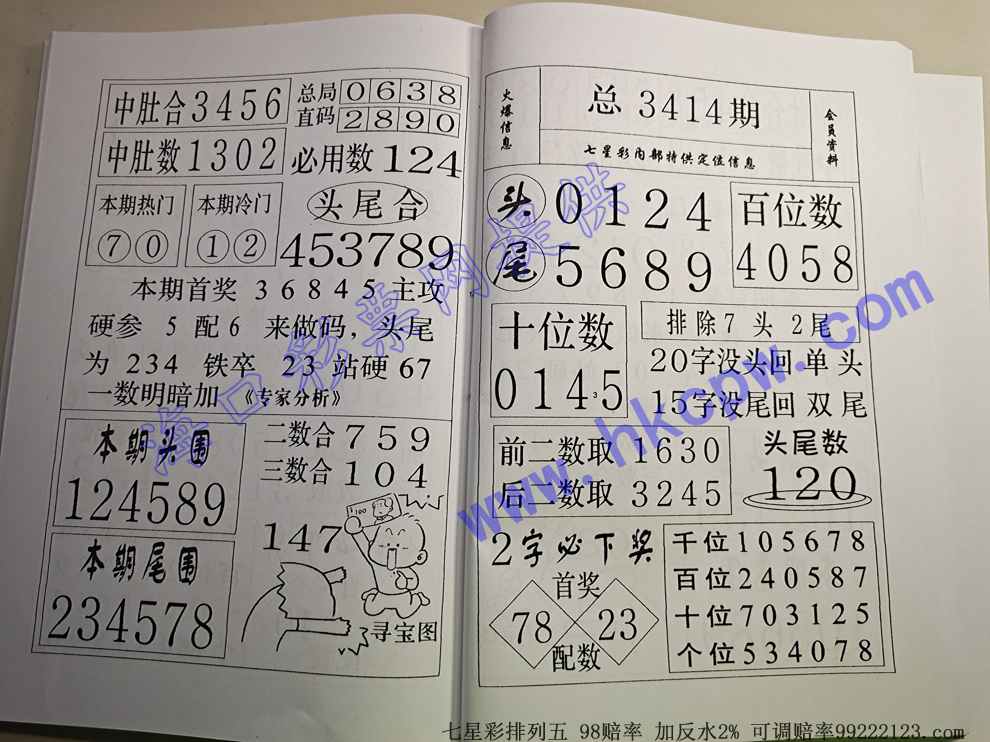 中肚合3456
总局 0638
直码 2890
中肚数1302
必用数124
本期热门
⑦⓪
本期冷门
①②
头尾合
453789
本期首奖 36845主攻
硬参 5 配6 来做码，头尾
为 234 铁卒 23站硬67
一数明暗加 《专家分析》
本期头围
124589
二数合759
三数合104
100
147
本期尾围
234578
寻宝图
火爆信息
总 3414期
七星彩内部特供定位信息
会员资料
头 0124
尾 5689
百位数
4058
十位数
0145
3
排除7 头 2尾
20字没头回 单 头
15字没尾回 双 尾
前二数取 1630
后二数取 3245
头尾数
120
2字必下奖
首奖
78 23
配数
千位105678
百位240587
十位703125
个位534078
海口彩票网提供
www.hkcpw.com
七星彩排列五 98赔率 加反水2% 可调赔率99222123.com